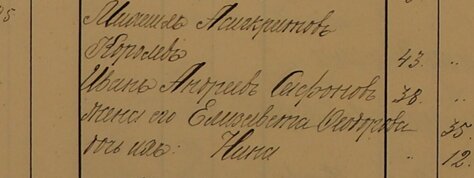 25
Михаилъ Асигкритовъ
Королевъ 43. "
Иванъ Андреевъ Сафоновъ 38. "
жена его Елизавета Ѳеодорова " 35
дочь ихъ: Нина " 12.